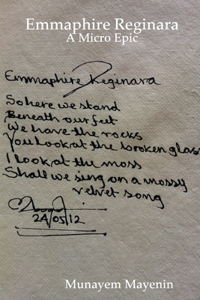 Emmaphire Reginara
A Micro Epic
Emmaphire Reginara
So here we stand
Beneath our feet
We have the rocks
You look at the broken glass
I look at the moss
Shall we sing on a mossy
velvet song
24/05/12
Munayem Mayenin